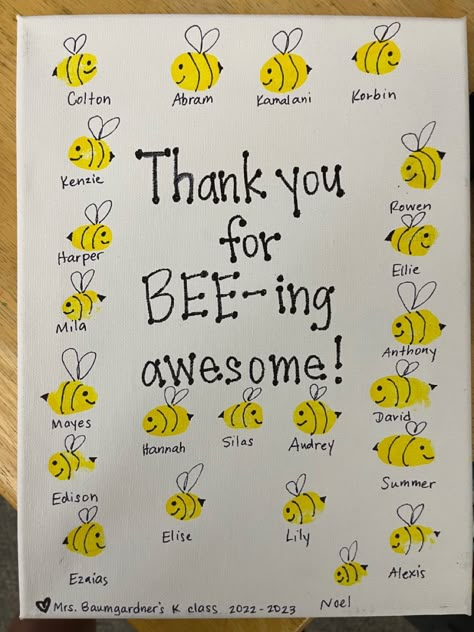 Colton
Abram
Kamalani
Korbin
Kenzie
Thank you
for
BEE-ing
awesome!
Rowen
Harper
Ellie
Mila
Anthony
Mayes
David
Hannah
Silas
Audrey
Edison
Summer
Elise
Lily
Ezaias
Alexis
Noel
Mrs. Baumgardner's K class 2022-2023